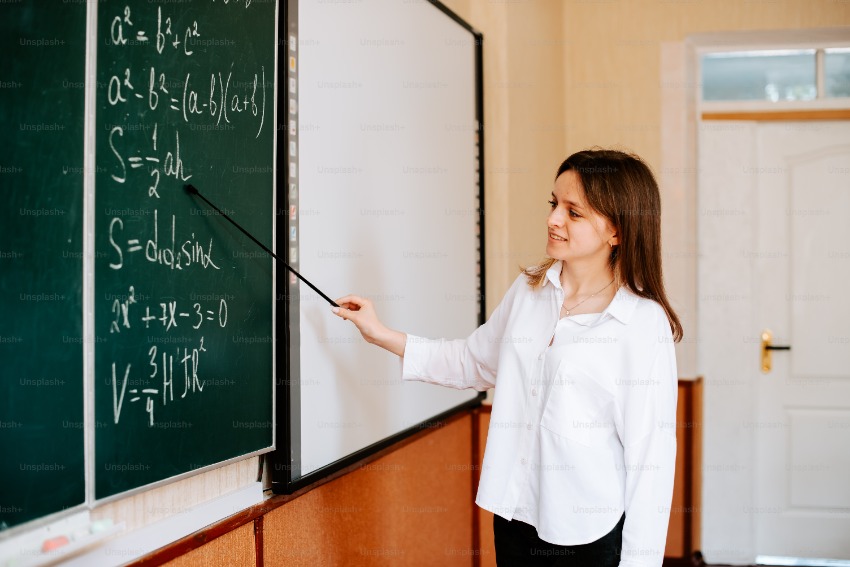 a² = b² + c²
a² - b² = (a-b)(a+b)
S = 1/2 ah
S = d₁d₂ sinα
2x² + 7x - 3 = 0
V = 3/4 HπR²